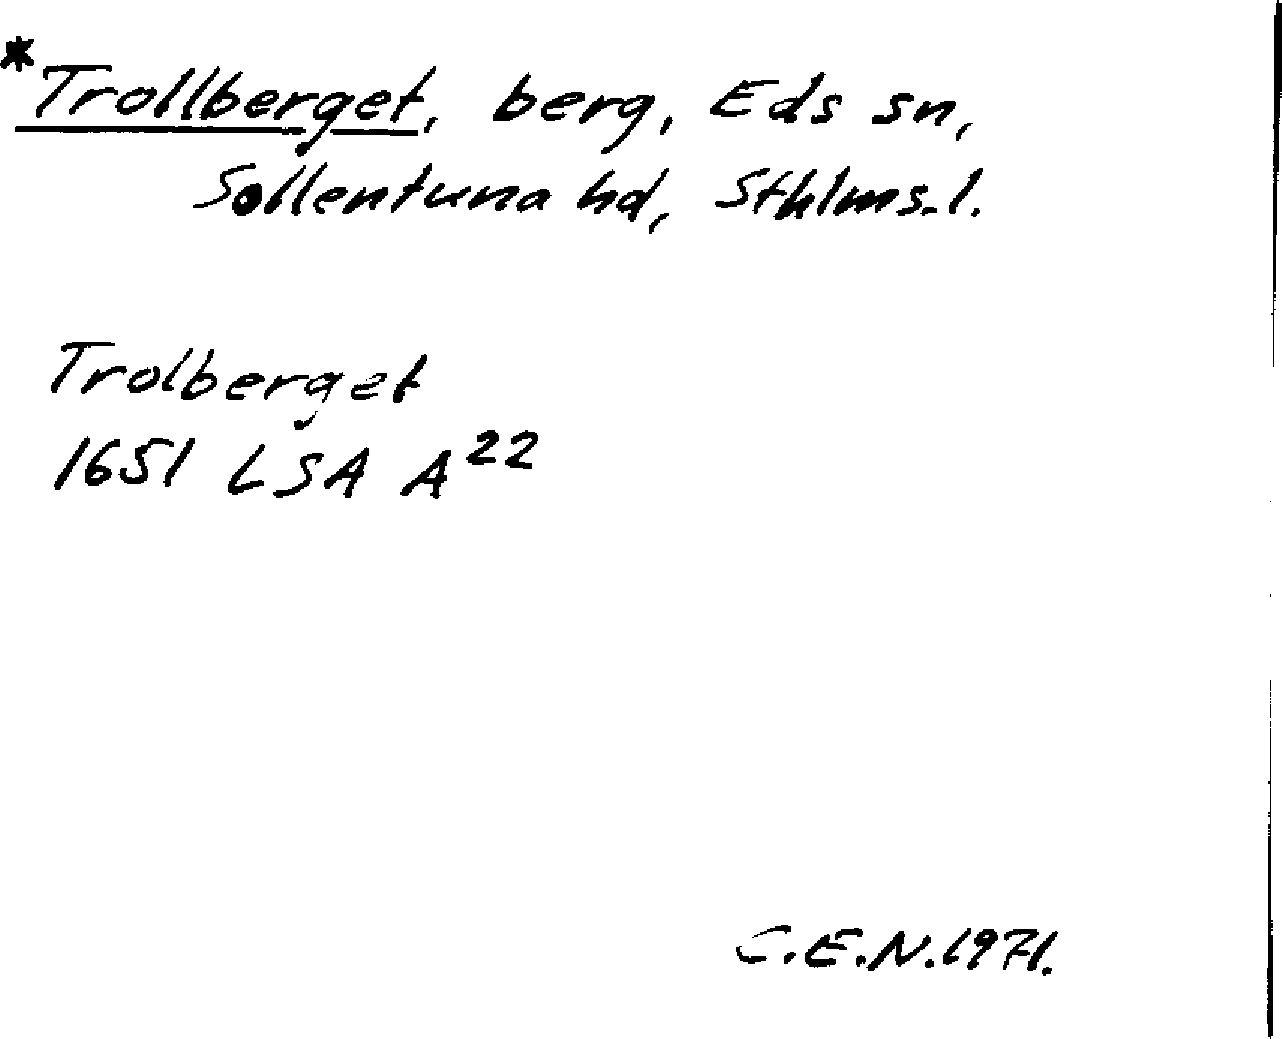 *Trollberget, berg, Eds sn,
Sollentuna hd, Sthlms. l.
Trolberget
1651 LSA A²²
C.E.N. 1971.